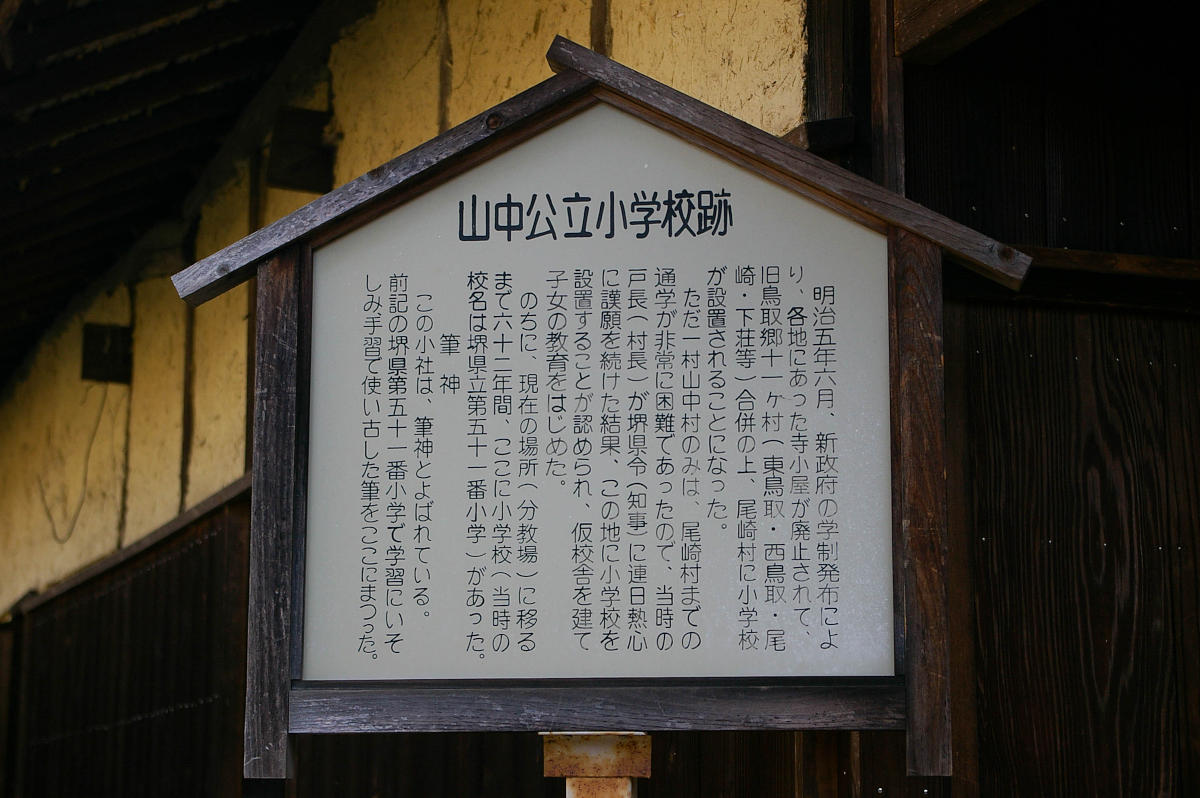 山中公立小学校跡
明治五年六月、新政府の学制発布によ
り、各地にあった寺小屋が廃止されて、
旧鳥取郷十一ヶ村（東鳥取・西鳥取・尾
崎・下荘等）合併の上、尾崎村に小学校
が設置されることになった。
ただ一村山中村のみは、尾崎村までの
通学が非常に困難であったので、当時の
戸長（村長）が堺県令（知事）に連日熱心
に護願を続けた結果、この地に小学校を
設置することが認められ、仮校舎を建て
子女の教育をはじめた。
のちに、現在の場所（分教場）に移る
まで六十二年間、ここに小学校（当時の
校名は堺県立第五十一番小学）があった。
筆神
この小社は、筆神とよばれている。
前記の堺県第五十一番小学で学習にいそ
しみ手習で使い古した筆をここにまつった。